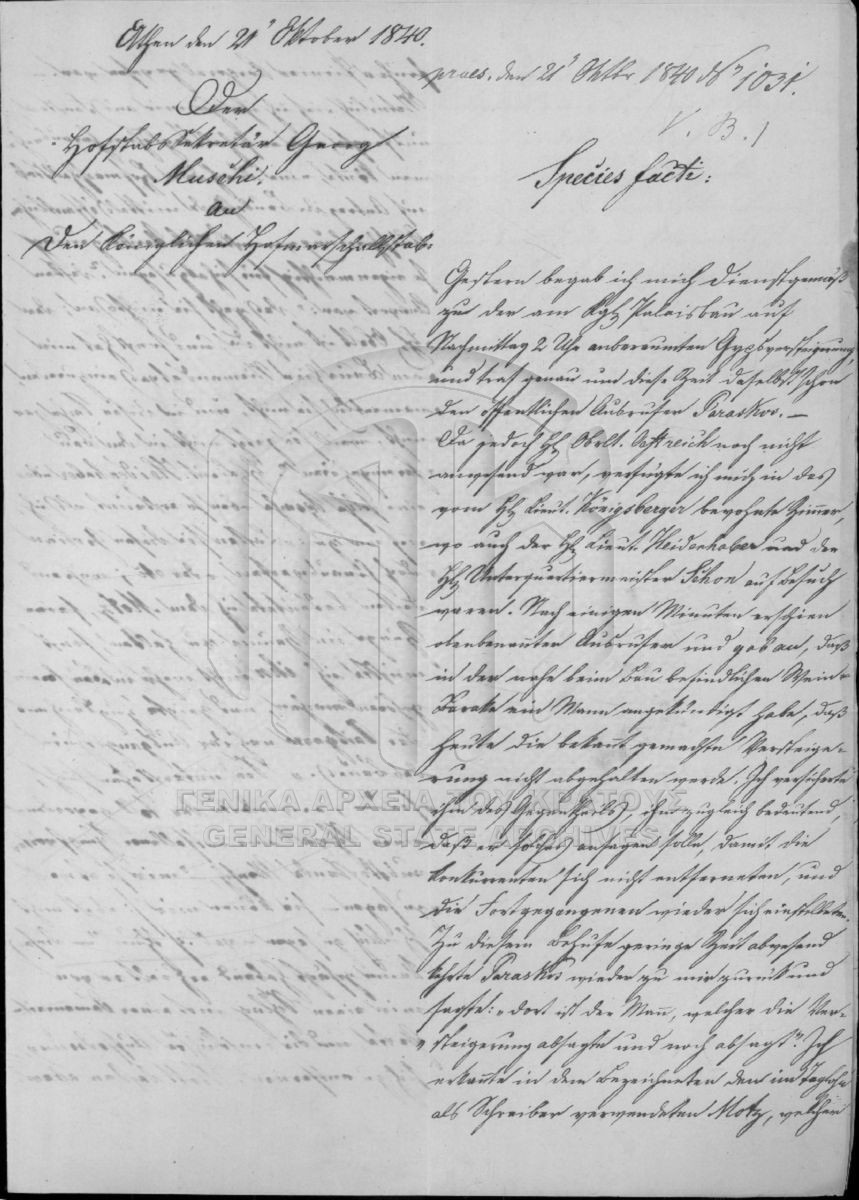 Athen den 21t Oktober 1840.
praes. den 21t Oktbr 1840 No 1031.
V. B. 1
Der
Hofstabssekretär Georg
Muschi.
An
Den königlichen Hofmarschallstab:
Species facti:
Gestern begab ich mich dienstgemäß
zu der am Kgl. Palaisbau auf
Nachmittag 2 Uhr anberaumten Gypsversteigerung,
und traf genau um diese Zeit daselbst schon
den öffentlichen Ausrufer Paraskos. —
Da jedoch H. Oblt. noch nicht
anwesend war, verfügte ich mich in das
vom H. Lieut. Königsberger bewohnte Zimmer,
wo auch der H. Lieut. Heidenhaber und der
H. Unterquartiermeister Schon auf Besuch
waren. Nach einigen Minuten erschien
obenbenannter Ausrufer und gab an, daß
in der nahe beim Bau befindlichen Wein-
Barake ein Mann angekündigt habe, daß
heute die bekannt gemachte Versteige-
rung nicht abgehalten werde. Ich versicherte
ihm das Gegentheil, ihm zugleich bedeutend,
daß er solches ansagen solle, damit die
Konkurrenten sich nicht entferneten, und
die Fortgegangenen wieder sich einstelleten.
Zu diesem Behufe geringe Zeit abwesend
kehrte Paraskos wieder zu mir zurück und
sagte: „dort ist der Mann, welcher die Ver-
„steigerung absagte und noch absagt". Ich
erkannte in dem Bezeichneten den im Taglohn
als Schreiber verwendeten Motz, welcher
ΓΕΝΙΚΑ ΑΡΧΕΙΑ ΤΟΥ ΚΡΑΤΟΥΣ
GENERAL STATE ARCHIVES